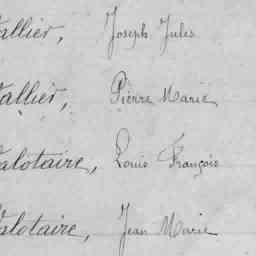 allier, Joseph Jules
allier, Pierre Marie
alotaire, Louis François
alotaire, Jean Marie